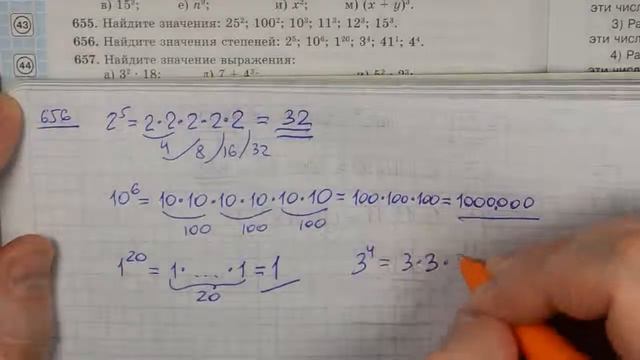 в) 15³; е) n³; и) x²; м) (x + y)³.
43
655. Найдите значения: 25²; 100²; 10³; 11³; 12³; 15³.
656. Найдите значения степеней: 2⁵; 10⁶; 1²⁰; 3⁴; 41¹; 4⁴.
44
657. Найдите значение выражения:
а) 3² · 18;
эти числ
3) Ра
эти числ
4) Ра
656 2⁵ = 2·2·2·2·2 = 32
4 8 16 32
10⁶ = 10·10·10·10·10·10 = 100·100·100 = 1000000
100 100 100
1²⁰ = 1·...·1 = 1 3⁴ = 3·3·
20